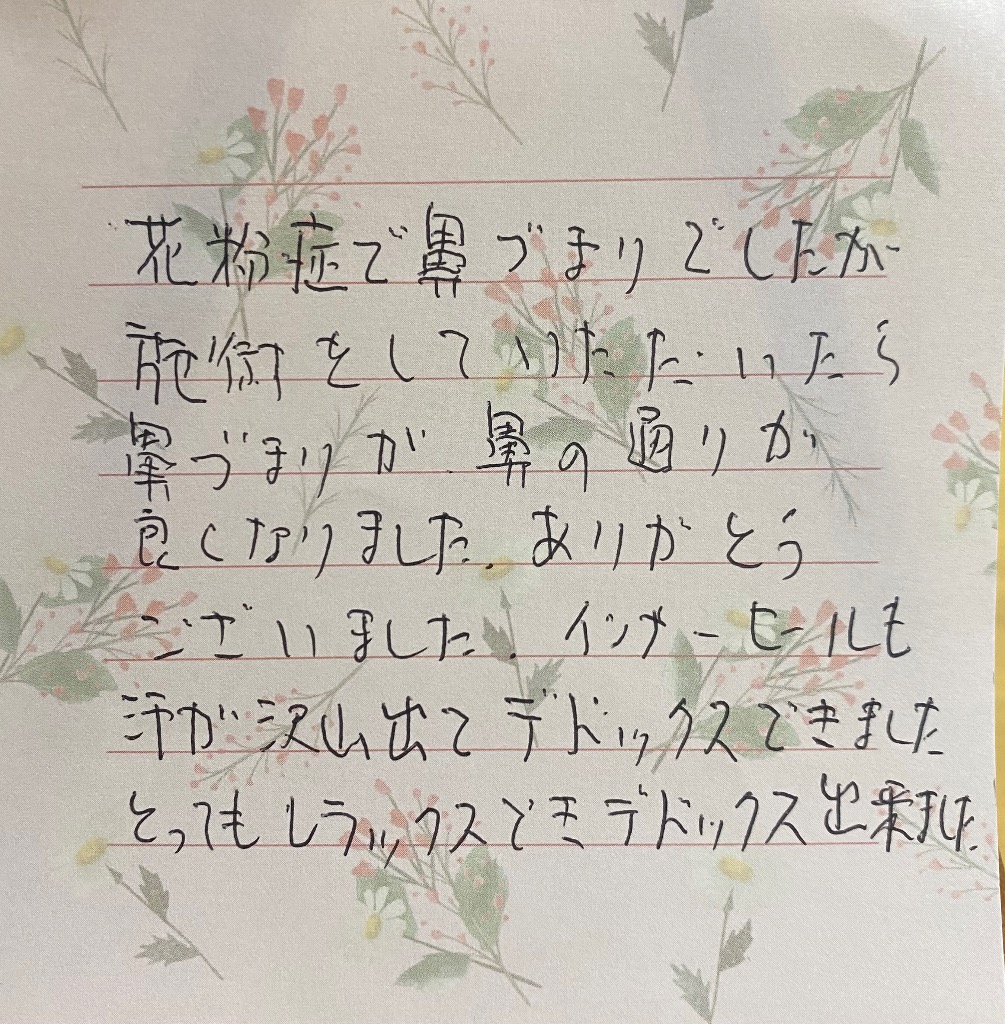 花粉症で鼻づまりでしたが
施術をしていただいたら
鼻づまりが鼻の通りが
良くなりました。ありがとう
ございました。インナーヒールも
汗が沢山出てデドックスできました
とってもレラックスどきデドックス出来ました